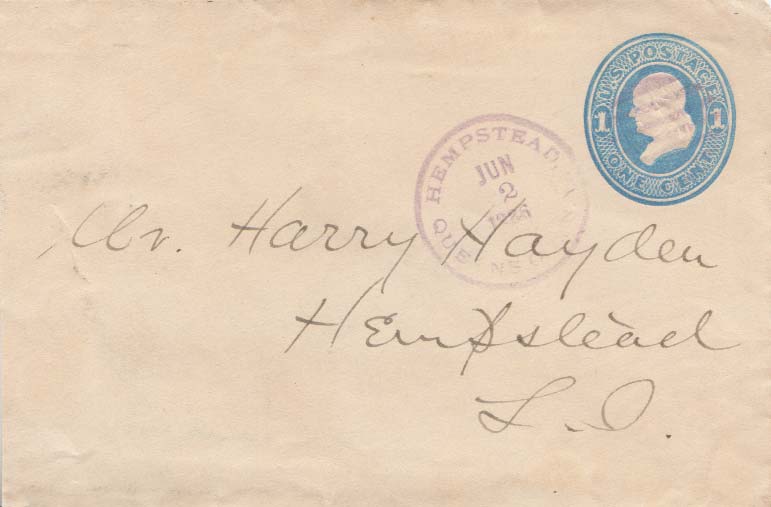 U.S. POSTAGE
1 1
ONE CENT
HEMPSTEAD,
JUN
2
QUEENS
Mr. Harry Hayden
Hempstead
L. I.